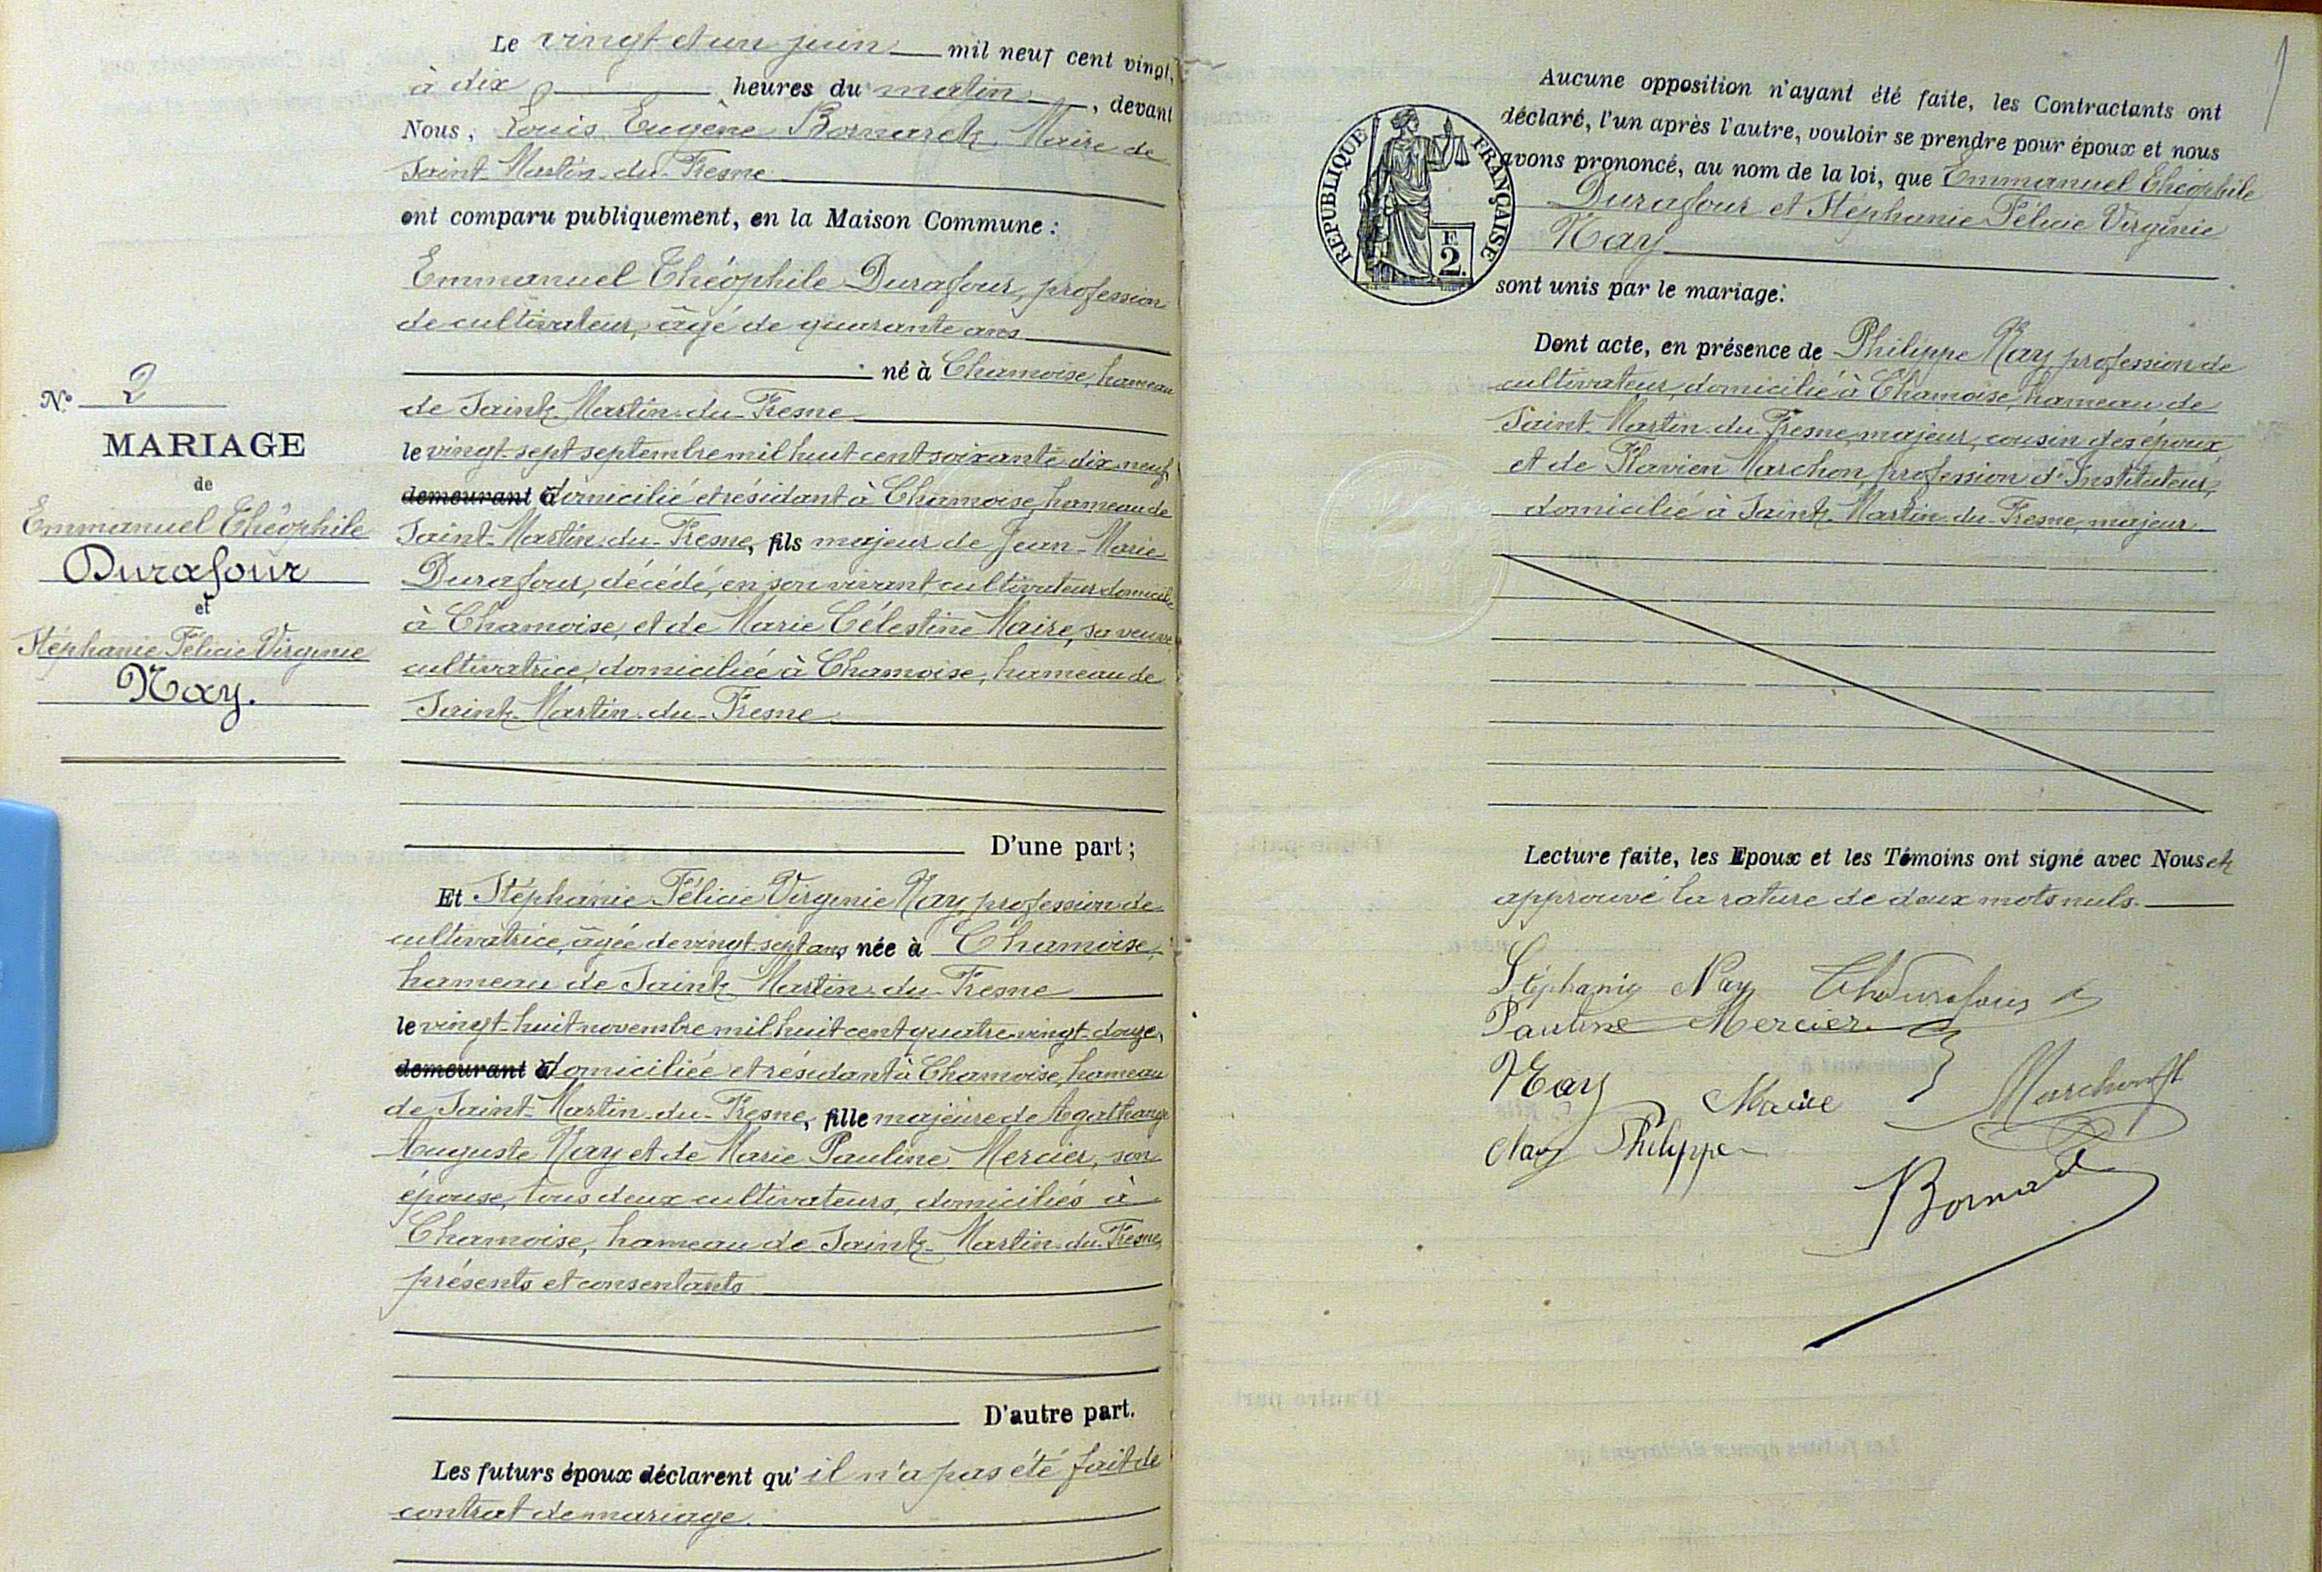 Le vingt et un juin mil neuf cent vingt,
à dix heures du matin, devant
Nous, Louis Eugène Bornarek, Maire de
Saint-Martin-du-Fresne
ont comparu publiquement, en la Maison Commune :
Emmanuel Théophile Durafour, profession
de cultivateur, âgé de quarante ans
né à Chamoise, hameau
de Saint-Martin-du-Fresne
le vingt-sept septembre mil huit cent soixante dix neuf,
demeurant à domicilié et résidant à Chamoise, hameau de
Saint-Martin-du-Fresne, fils majeur de Jean-Marie
Durafour, décédé, en son vivant, cultivateur domicilié
à Chamoise, et de Marie Célestine Maire, sa veuve
cultivatrice, domiciliée à Chamoise, hameau de
Saint-Martin-du-Fresne
D'une part ;
Et Stéphanie Félicie Virginie Nay, profession de
cultivatrice, âgée de vingt-sept ans, née à Chamoise,
hameau de Saint-Martin-du-Fresne
le vingt-huit novembre mil huit cent quatre vingt-douze,
demeurant à domiciliée et résidant à Chamoise, hameau
de Saint-Martin-du-Fresne, fille majeure de Agathange
Auguste Nay et de Marie Pauline Mercier, son
épouse, tous deux cultivateurs, domiciliés à
Chamoise, hameau de Saint-Martin-du-Fresne,
présents et consentants
D'autre part.
Les futurs époux déclarent qu'il n'a pas été fait de
contrat de mariage.
N° 2
MARIAGE
de
Emmanuel Théophile
Durafour
et
Stéphanie Félicie Virginie
Nay.
Aucune opposition n'ayant été faite, les Contractants ont
déclaré, l'un après l'autre, vouloir se prendre pour époux et nous
avons prononcé, au nom de la loi, que Emmanuel Théophile
Durafour et Stéphanie Félicie Virginie
Nay
sont unis par le mariage.
RÉPUBLIQUE FRANÇAISE
F
2.
Dont acte, en présence de Philippe Nay, profession de
cultivateur, domicilié à Chamoise, hameau de
Saint-Martin-du-Fresne, majeur, cousin des époux
et de Flavien Marchon, profession d'Instituteur,
domicilié à Saint-Martin-du-Fresne, majeur
Lecture faite, les Epoux et les Témoins ont signé avec Nous et
approuvé la rature de deux mots nuls.
Stéphanie Nay Th Durafour
Pauline Mercier
Nay Maire Marchon fl
Nay Philippe